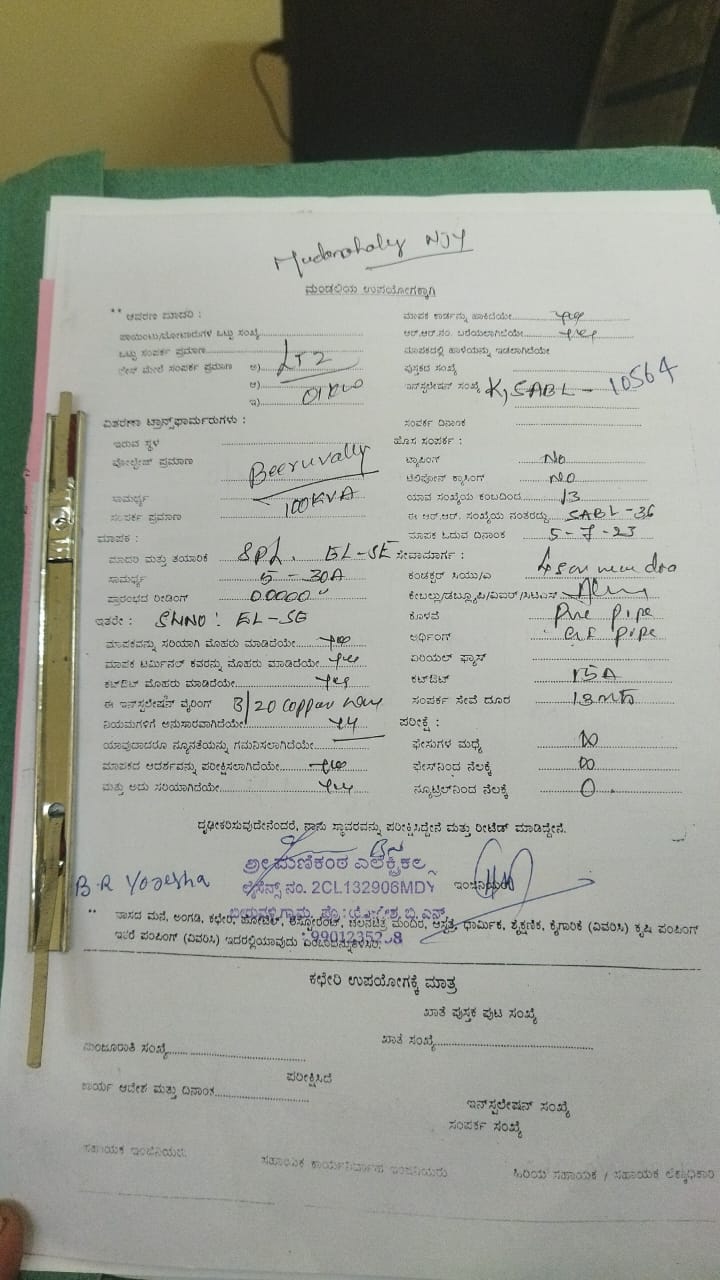 Mudanahaly NJY
ಮಂಡಲಿಯ ಉಪಯೋಗಕ್ಕಾಗಿ
** ಆವರಣ ಮಾದರಿ :
ಪಾಯಿಂಟು/ಮೋಟಾರುಗಳ ಒಟ್ಟು ಸಂಖ್ಯೆ
ಒಟ್ಟು ಸಂಪರ್ಕ ಪ್ರಮಾಣ
ಮೇಲೆ ಸಂಪರ್ಕ ಪ್ರಮಾಣ ಅ) LT2
ಆ)
ಇ) 01KW
ಮಾಪಕ ಕಾರ್ಡನ್ನು ಹಾಕಿದೆಯೇ yes
ಆರ್.ಆರ್.ನಂ. ಬರೆಯಲಾಗಿದೆಯೇ yes
ಮಾಪಕದಲ್ಲಿ ಹಾಳೆಯನ್ನು ಇಡಲಾಗಿದೆಯೇ
ಪುಸ್ತಕದ ಸಂಖ್ಯೆ
ಇನ್‌ಸ್ಟಲೇಷನ್ ಸಂಖ್ಯೆ K, SABL - 10564
ಸಂಪರ್ಕ ದಿನಾಂಕ
ವಿತರಣಾ ಟ್ರಾನ್ಸ್‌ಫಾರ್ಮರುಗಳು :
ಇರುವ ಸ್ಥಳ
ವೋಲ್ಟೇಜ್ ಪ್ರಮಾಣ Beeruvally
ಸಾಮರ್ಥ್ಯ 100KVA
ಸಂಪರ್ಕ ಪ್ರಮಾಣ
ಹೊಸ ಸಂಪರ್ಕ :
ಟ್ಯಾಪಿಂಗ್ NO
ಟೆಲಿಫೋನ್ ಕ್ರಾಸಿಂಗ್ NO
ಯಾವ ಸಂಖ್ಯೆಯ ಕಂಬದಿಂದ 13
ಈ ಆರ್.ಆರ್. ಸಂಖ್ಯೆಯ ನಂತರದ್ದು SABL-36
ಮಾಪಕ ಓದುವ ದಿನಾಂಕ 5-7-23
ಮಾಪಕ :
ಮಾದರಿ ಮತ್ತು ತಯಾರಿಕೆ SPL. EL-SE
ಸಾಮರ್ಥ್ಯ 5-30A
ಪ್ರಾರಂಭದ ರೀಡಿಂಗ್ 00000
ಇತರೇ : SLNO: EL-SE
ಮಾಪಕವನ್ನು ಸರಿಯಾಗಿ ಮೊಹರು ಮಾಡಿದೆಯೇ yes
ಮಾಪಕ ಟರ್ಮಿನಲ್ ಕವರನ್ನು ಮೊಹರು ಮಾಡಿದೆಯೇ yes
ಕಟ್ಔಟ್ ಮೊಹರು ಮಾಡಿದೆಯೇ yes
ಈ ಇನ್‌ಸ್ಟಲೇಷನ್ ವೈರಿಂಗ್ 3/20 Copper
ನಿಯಮಗಳಿಗೆ ಅನುಸಾರವಾಗಿದೆಯೇ yes
ಯಾವುದಾದರೂ ನ್ಯೂನತೆಯನ್ನು ಗಮನಿಸಲಾಗಿದೆಯೇ
ಮಾಪಕದ ಆದರ್ಶವನ್ನು ಪರೀಕ್ಷಿಸಲಾಗಿದೆಯೇ yes
ಮತ್ತು ಅದು ಸರಿಯಾಗಿದೆಯೇ yes
ಸೇವಾಮಾರ್ಗ :
ಕಂಡಕ್ಟರ್ ಸಿಯು/ಎ
ಕೇಬಲ್ಲು/ಡಬ್ಲ್ಯೂಪಿ/ವಿಐಆರ್/ಸಿಟಿಎಸ್
ಕೊಳವೆ PVC pipe
ಅರ್ಥಿಂಗ್ G.I pipe
ಏರಿಯಲ್ ಫ್ಯೂಸ್
ಕಟ್ಔಟ್ 15A
ಸಂಪರ್ಕ ಸೇವೆ ದೂರ 13mts
ಪರೀಕ್ಷೆ :
ಫೇಸುಗಳ ಮಧ್ಯೆ ∞
ಫೇಸ್‌ನಿಂದ ನೆಲಕ್ಕೆ ∞
ನ್ಯೂಟ್ರಲ್‌ನಿಂದ ನೆಲಕ್ಕೆ 0
ದೃಢೀಕರಿಸುವುದೇನೆಂದರೆ, ನಾನು ಸ್ಥಾವರವನ್ನು ಪರೀಕ್ಷಿಸಿದ್ದೇನೆ ಮತ್ತು ರೀಟೆಡ್ ಮಾಡಿದ್ದೇನೆ.
ಶ್ರೀ ಮಣಿಕಂಠ ಎಲೆಕ್ಟ್ರಿಕಲ್ಸ್
ಲೈಸೆನ್ಸ್ ನಂ. 2CL132906MDY
B.R Yogesha
** ವಾಸದ ಮನೆ, ಅಂಗಡಿ, ಕಛೇರಿ, ಹೋಟೆಲ್, ರೆಸ್ಟೋರೆಂಟ್, ಚಲನಚಿತ್ರ ಮಂದಿರ, ಆಸ್ಪತ್ರೆ, ಧಾರ್ಮಿಕ, ಶೈಕ್ಷಣಿಕ, ಕೈಗಾರಿಕೆ (ವಿವರಿಸಿ) ಕೃಷಿ ಪಂಪಿಂಗ್
ಇತರೆ ಪಂಪಿಂಗ್ (ವಿವರಿಸಿ) ಇದರಲ್ಲಿಯಾವುದು
ಕಛೇರಿ ಉಪಯೋಗಕ್ಕೆ ಮಾತ್ರ
ಖಾತೆ ಪುಸ್ತಕ ಪುಟ ಸಂಖ್ಯೆ
ಮಂಜೂರಾತಿ ಸಂಖ್ಯೆ
ಖಾತೆ ಸಂಖ್ಯೆ
ಪರೀಕ್ಷಿಸಿದೆ
ಕಾರ್ಯ ಆದೇಶ ಮತ್ತು ದಿನಾಂಕ
ಇನ್‌ಸ್ಟಲೇಷನ್ ಸಂಖ್ಯೆ
ಸಂಪರ್ಕ ಸಂಖ್ಯೆ
ಸಹಾಯಕ ಇಂಜಿನಿಯರು
ಸಹಾಯಕ ಕಾರ್ಯನಿರ್ವಾಹಕ ಇಂಜಿನಿಯರು
ಹಿರಿಯ ಸಹಾಯಕ / ಸಹಾಯಕ ಲೆಕ್ಕಾಧಿಕಾರಿ